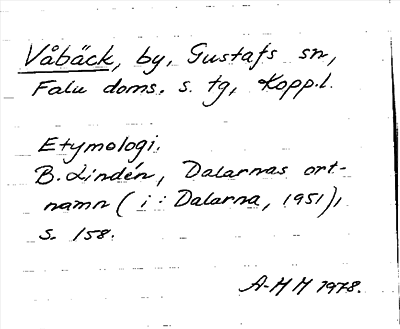 Våbäck, by, Gustafs sn,
Falu doms. s. tg, Kopp.l.
Etymologi.
B. Lindén, Dalarnas ort-
namn ( i : Dalarna, 1951),
s. 158.
A-M H 1978.